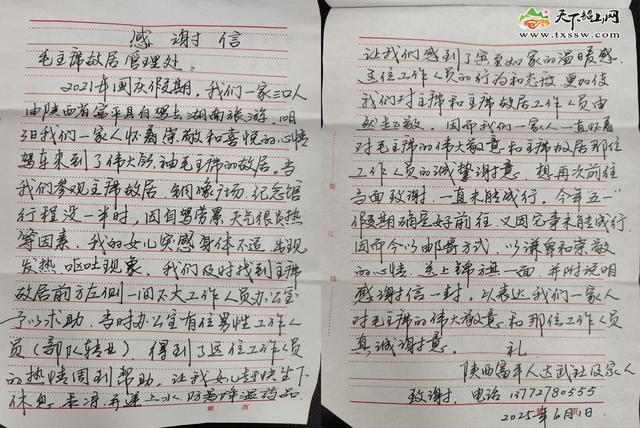 感谢信
毛主席故居管理处:
2021年国庆假期,我们一家三口人
由陕西省富平县自驾去湖南旅游,
3日我们一家人怀着崇敬和喜悦的心情
驾车来到了伟大领袖毛主席的故居。当
我们参观主席故居、铜像广场、纪念馆
行程没一半时,因自驾劳累、天气很炎热
等因素,我的女儿突感身体不适,出现
发热呕吐现象,我们及时找到主席
故居前方左侧一间不大工作人员办公室
予以求助,当时办公室有位男性工作人
员(部队转业),得到了这位工作人员
的热情周到帮助,让我女儿赶快坐下
休息,并递上水、防暑降温药品
第 页
天下韶山网
www.txssw.com
让我们感到了宾至如家的温暖感。
这位工作人员的行为和态度,更加使
我们对主席和主席故居工作人员由
然起敬,因而我们一家人一直怀着
对毛主席的伟大敬意和主席故居那位
工作人员的诚挚谢意,想再次前往
当面致谢,一直未能成行。今年五一
假期确定好前往,又因它事未能成行,
因而今以邮寄方式,以谦卑和崇敬
的心情,送上锦旗一面,并附说明
感谢信一封,以表达我们一家人
对毛主席的伟大敬意和那位工作人员
真诚谢意。 礼
陕西富平人达武社及家人
致谢,电话13772780555
2025年6月1日
第 页